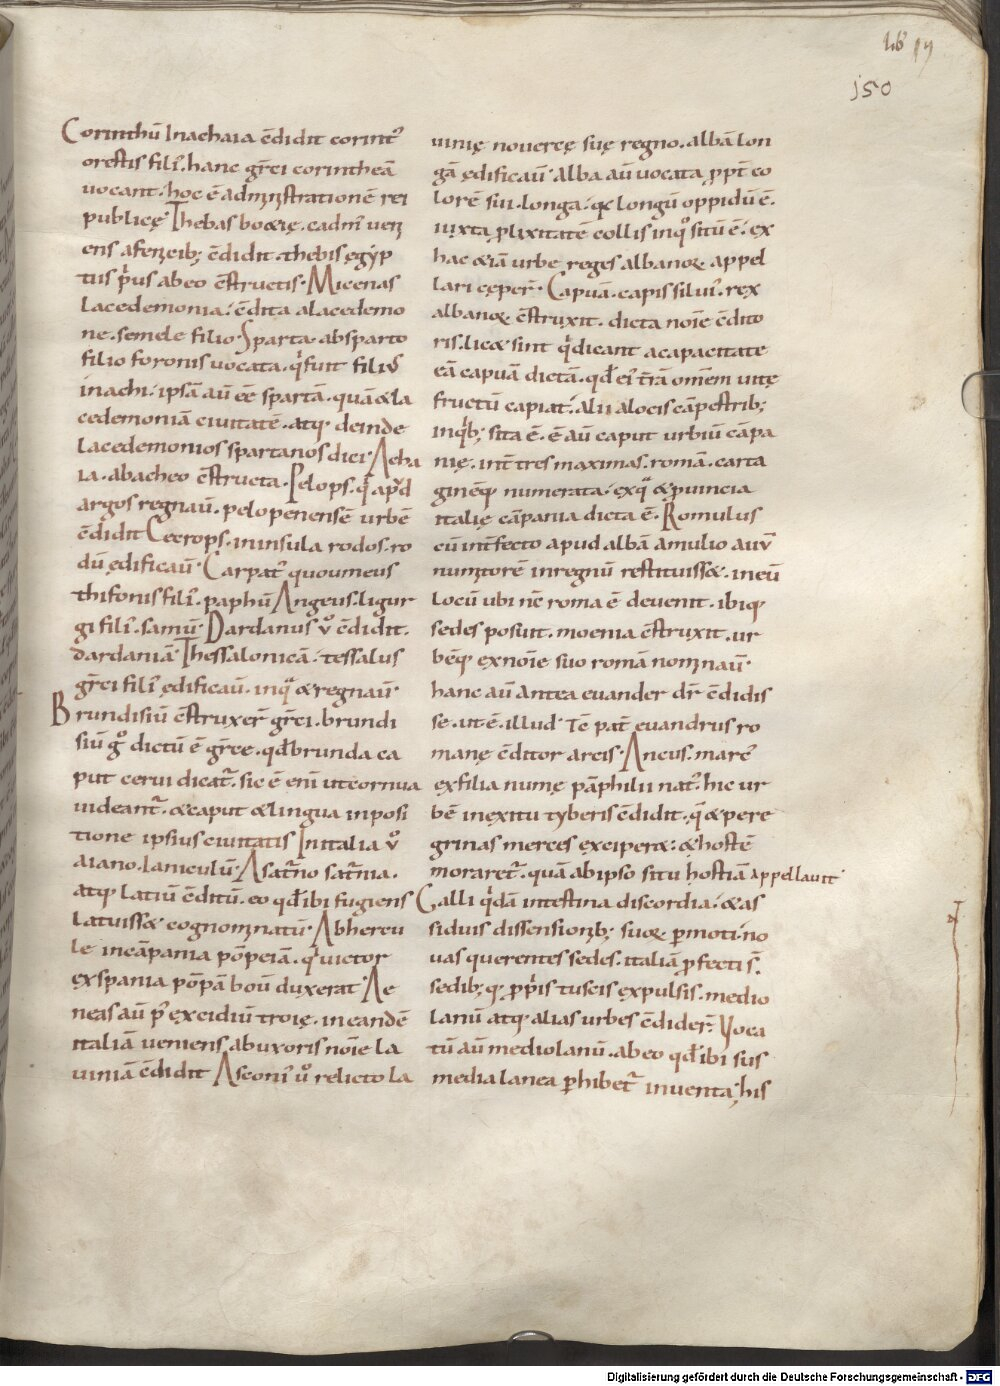 lib 19
150
Corinthū Inachaia c̄didit corint᷒
orestis fili᷒. hanc gr̄ci corintheā
vocant. hoc ē adminstrationē rei
publicę Thebas boetię. cadm᷒ veni
ens afenicib; c̄didit. thebis ęgyp
tiis p̄us abeo c̄structis. Micenas
lacedemonia. c̄dita alacedemo
ne. semele filio. Sparta. absparto
filio foronis vocata. q̇ fuit fili᷒
inachi. ipsā aū eē spartā. quā & la
cedemoniā civitatē. atq; deinde
lacedemonios spartanos dici. Acha
ia. abacheo c̄structa. Pelops. q̇ ap̄d
argos regnaū. pelopenensē urbē
c̄didit Cecrops. in insula rodos. ro
dū ędificaū. Carpat᷒ quoumeus
thifonis fili᷒. paphū Angeus. ligur
gi fili᷒. samū. Dardanus v̊ c̄didit.
dardaniā. Thessalonicā. tessalus
gr̄ci fili᷒ ędificaū. in q̄ & regnaū.
Brundisiū c̄struxer̄ gr̄ci. brundi
siū g̊ dictū ē grēce. qđ brunda ca
put cervi dicat᷑. sic ē eni᷒ ut cornua
videant᷑. & caput & lingua in posi
tione ipsius civitatis In italia v̊
aiano. Ianiculū. A sat᷑no sat᷑nia.
atq; latiū c̄ditū. eo qđ ibi fugiens
latuiss& cognominatū. Abhercu
le in cāpania pōpeiā. q̇ victor
ex spania pōpā boū duxerat Ae
neas aū p᷒ excidiū troię. in eandē
italiā veniens. ab uxoris noīe la
viniā c̄didit Asconi᷒ v̊ relicto la
vinię novercę suę regno. albā lon
gā ędificaū. alba aū vocata. ppt̄ co
lorē sui. longa. q̄ & longū oppidū ē.
iuxta plixitatē collis in q̊ sitū ē. ex
hac &iā urbe reges albanoꝝ appel
lari cępeꝛ̄. Capuā. capis silvi᷒. rex
albanoꝝ c̄struxit. dicta noīe c̄dito
ris. lic& sint q̇ dicant acapacitate
eā capuā dictā. qđ ei᷒ tr̄a omēm vitę
fructū capiat. alii alocis cāpestrib;
in q̇b; sita ē. ē aū caput urbiū cāpa
nię. int̄ tres maximas. romā. carta
ginēq; numerata. ex q̄ & p̱vincia
italię cāpania dicta ē. Romulus
cū int̄fecto apud albā amulio avū
numitorē in regnū restituiss&. in eū
locū ubi nc̄ roma ē devenit. ibiq;
sedes posuit. moenia c̄struxit. ur
bēq; ex noīe suo romā nominaū.
hanc aū antea evander dr̄ c̄didis
se. ut ē. illud Tē pat̄ evandrus ro
manę c̄ditor arcis. Ancus. marc᷒
ex filia numę pāphilii nat᷒. hic ur
bē in exitu tyberis c̄didit. q̄ & pere
grinas merces exciper&. & hostē
moraret᷑. quā ab ipso situ hostiā appellavit
Galli q̇dā intestina discordia. & as
siduis dissensionib; suoꝝ p̱moti. no
vas querentes sedes. italiā p̱fecti s̄.
sedib;q; pp̱ris tuscis expulsis. medio
lanū atq; alias urbes c̄dider̄. Voca
tū aū mediolanū. ab eo qđ ibi sus
media lanea p̱hibet᷑ inventa. his
Digitalisierung gefördert durch die Deutsche Forschungsgemeinschaft - DFG